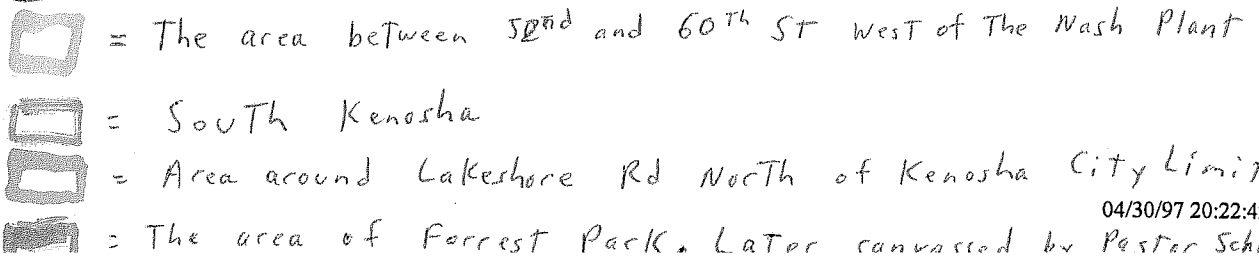 = The area between 52nd and 60Th ST West of The Nash Plant
= SouTh Kenosha
= Area around Lakeshore Rd NorTh of Kenosha CiTy Limit
04/30/97 20:22:4
= The area of Forrest Park. LaTer canvassed by Pastor Sch